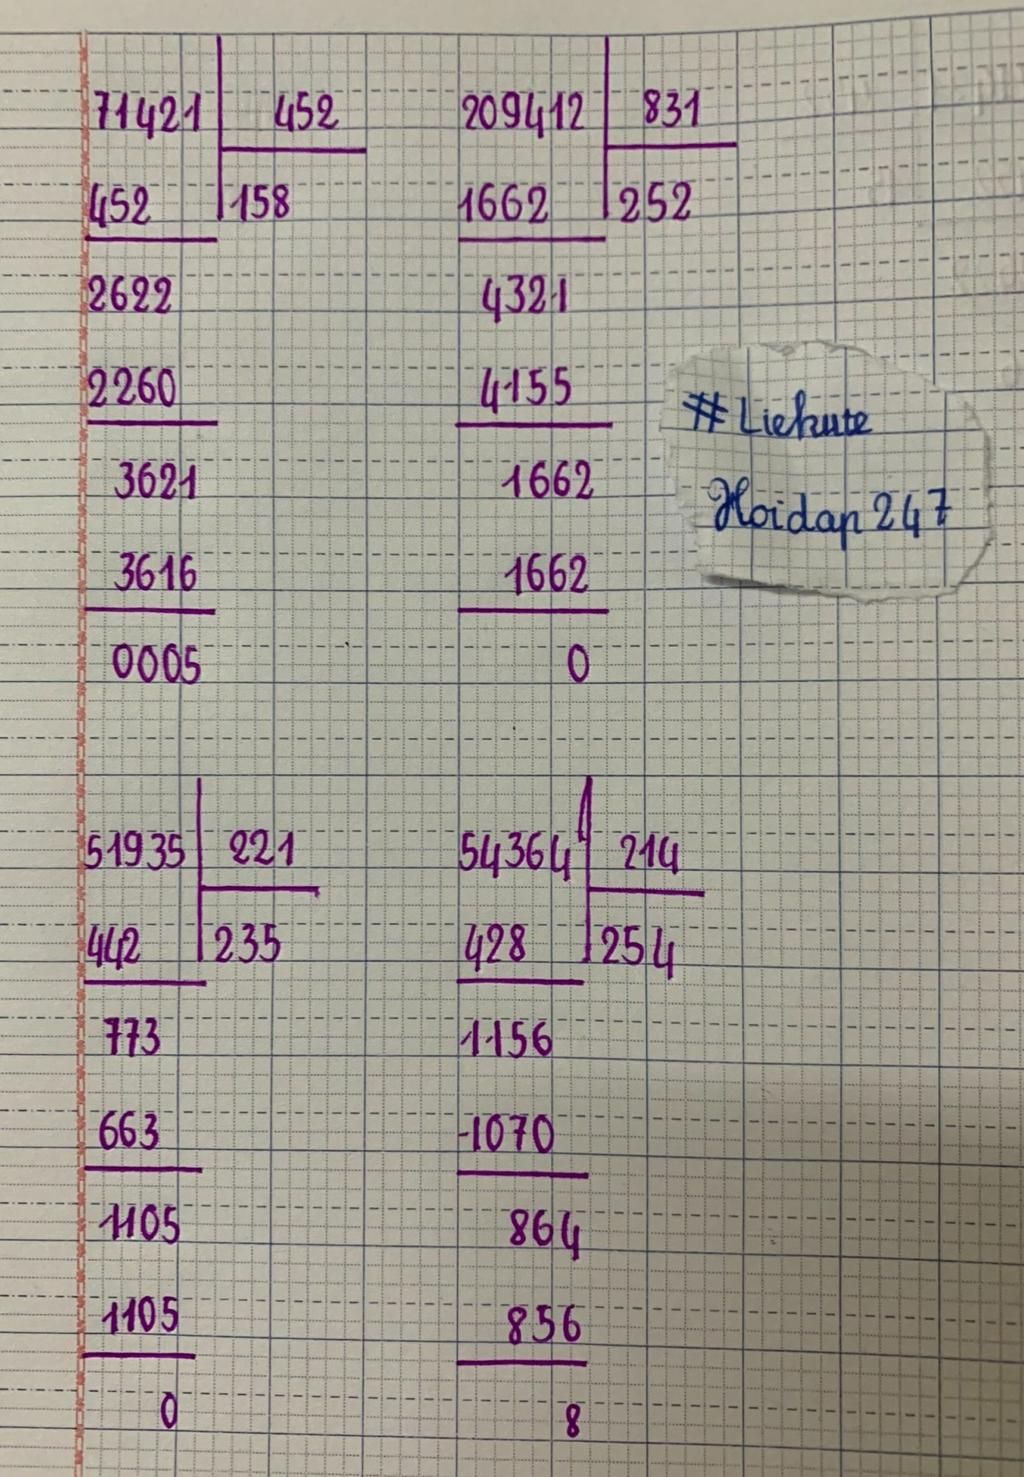 71421 452
452 158
2622
2260
3621
3616
0005
209412 831
1662 252
4321
4155
1662
1662
0
#Liekute
Hoidap247
51935 221
442 235
773
663
1105
1105
0
54364 214
428 254
1156
-1070
864
856
8